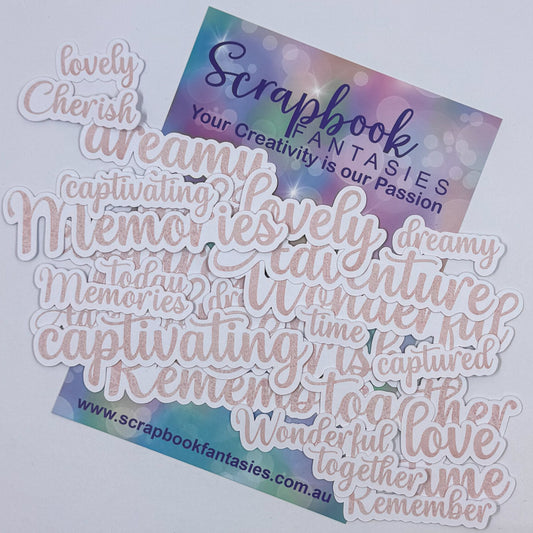 lovely
Cherish
Scrapbook
FANTASIES
Your Creativity is our Passion
dreamy
captivating
Memories
lovely
dreamy
adventure
today
Memories
Wonderful
time
captivating
captured
Remember
together
love
Wonderful
together
time
Remember
www.scrapbookfantasies.com.au